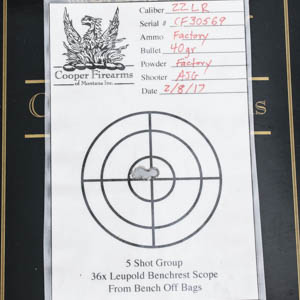 Caliber 22LR
Serial # CF30569
Ammo Factory
Bullet 40gr
Powder Factory
Shooter AJG
Date 2/8/17
Cooper Firearms
of Montana Inc.
5 Shot Group
36x Leupold Benchrest Scope
From Bench Off Bags